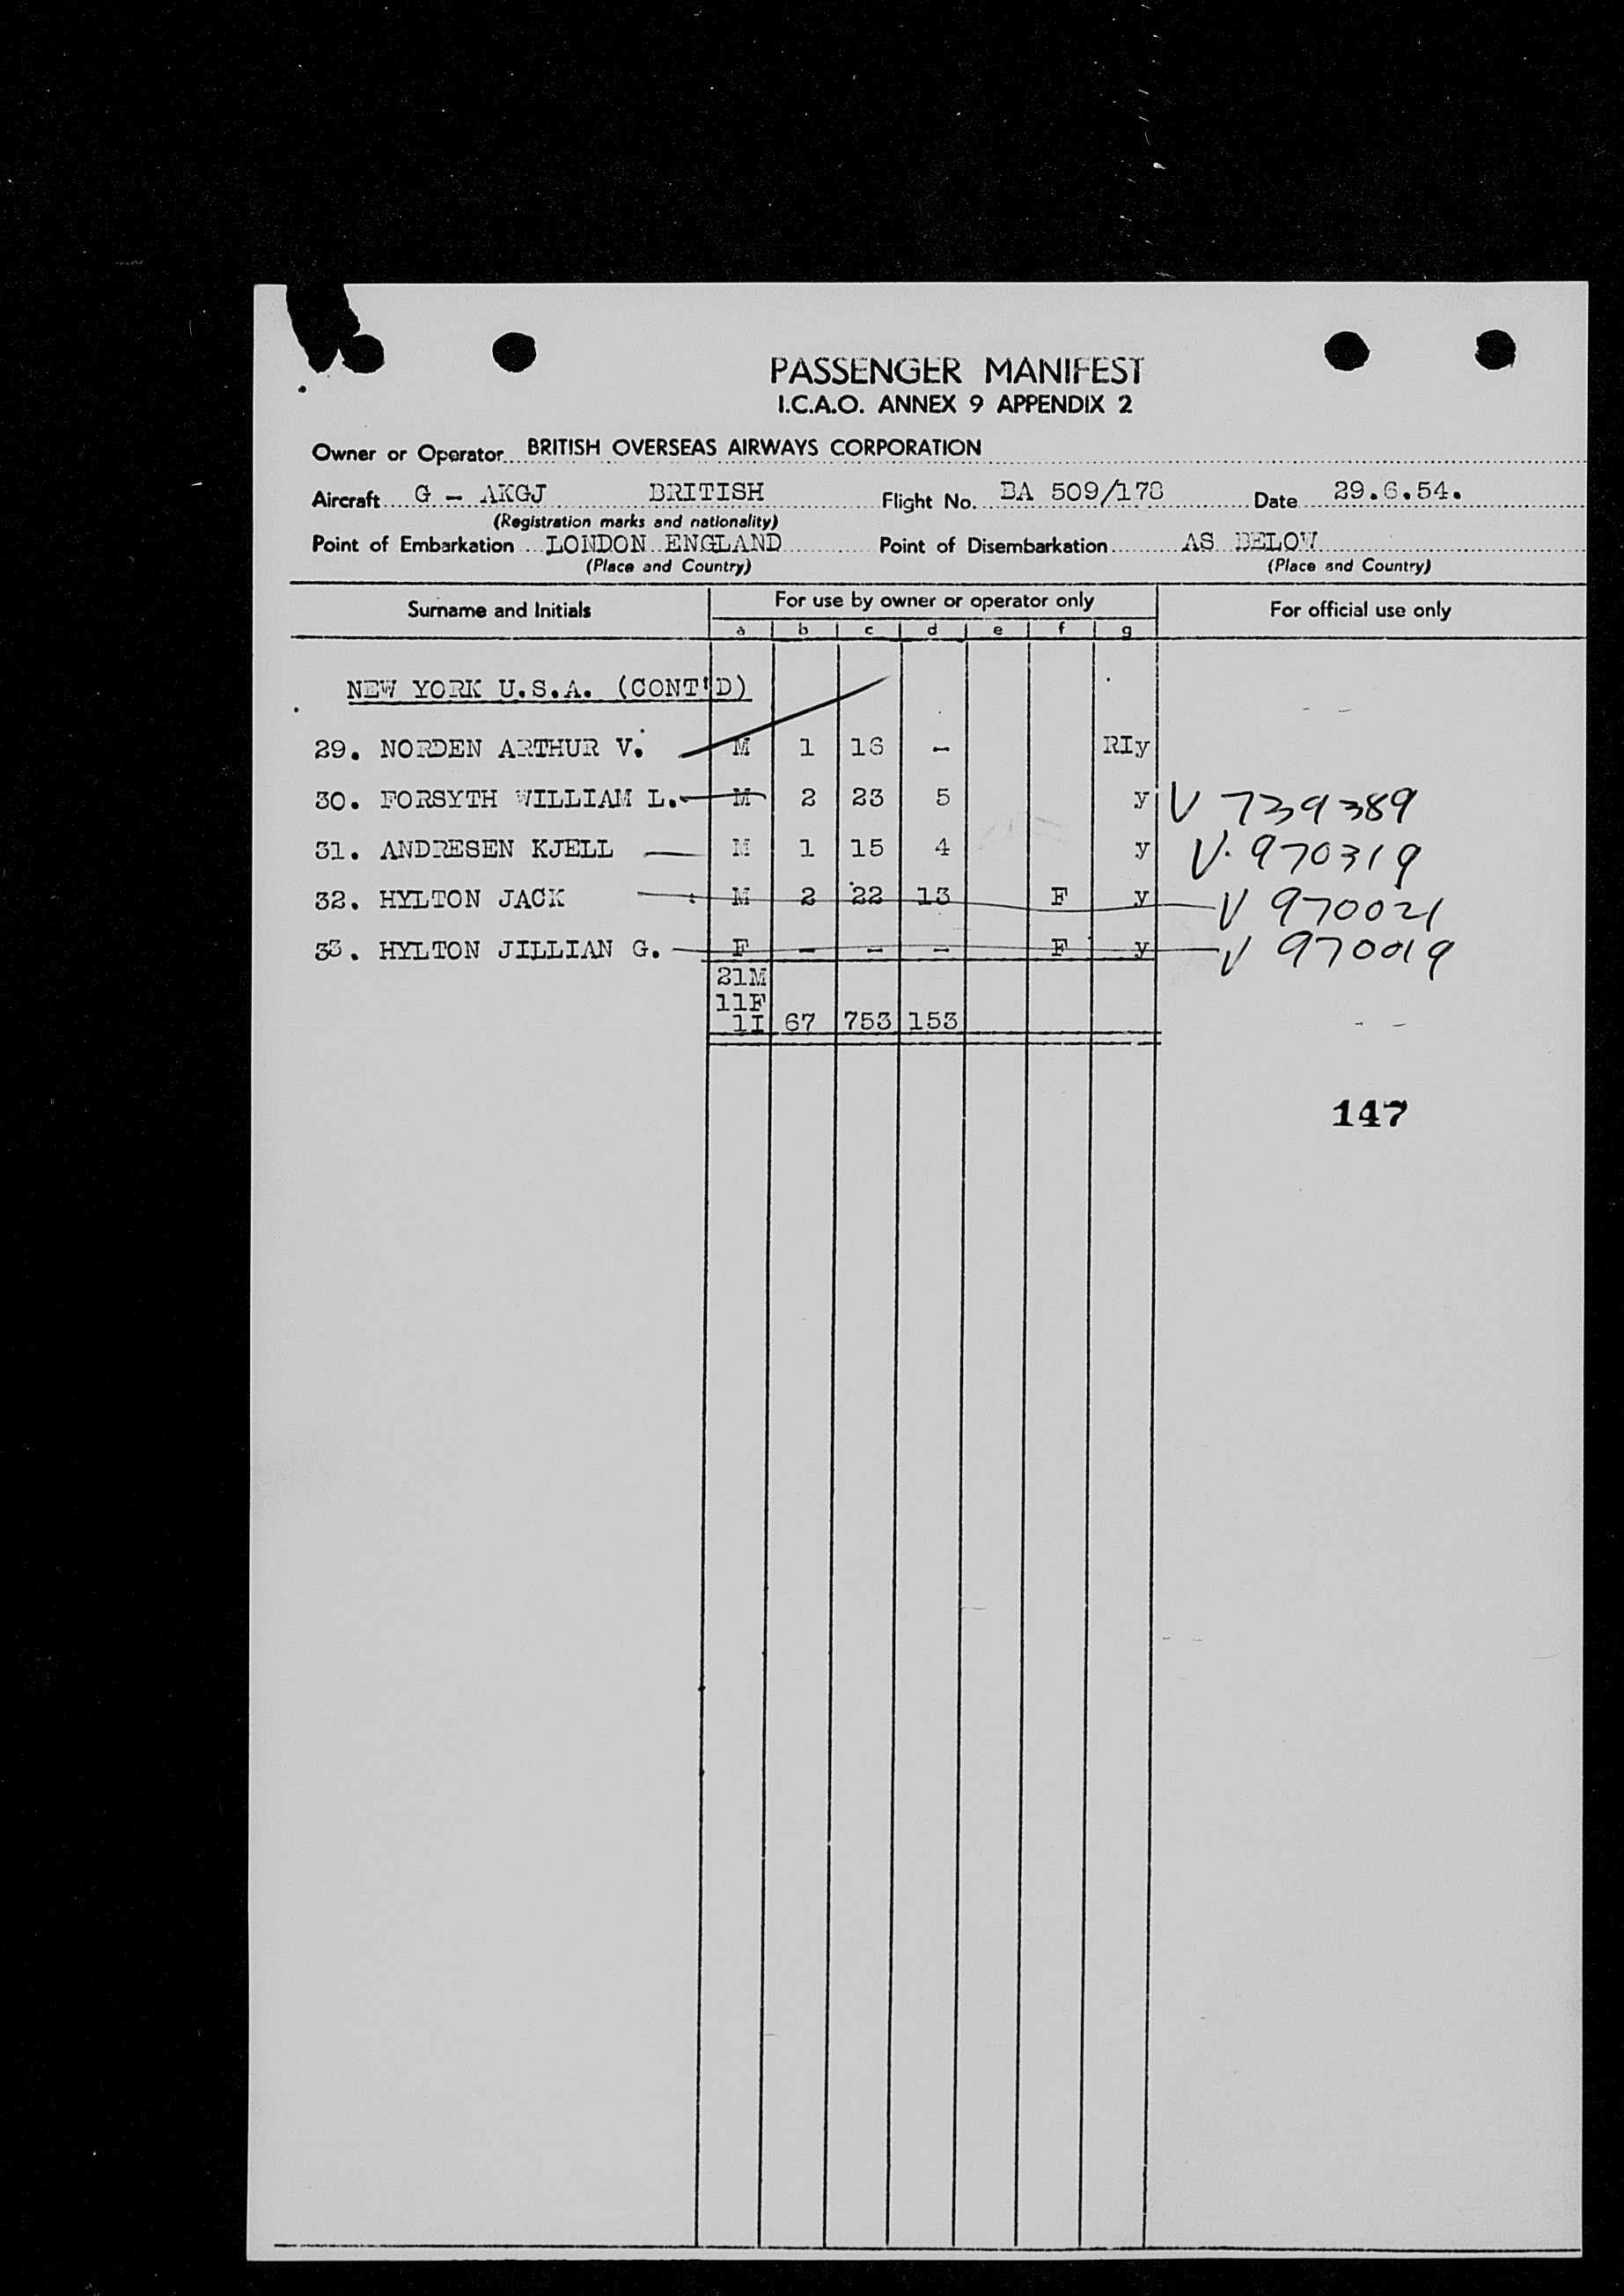 PASSENGER MANIFEST
I.C.A.O. ANNEX 9 APPENDIX 2
Owner or Operator BRITISH OVERSEAS AIRWAYS CORPORATION
Aircraft G - AKGJ BRITISH Flight No. BA 509/178 Date 29.6.54.
(Registration marks and nationality)
Point of Embarkation LONDON ENGLAND Point of Disembarkation AS BELOW
(Place and Country) (Place and Country)
Surname and Initials For use by owner or operator only For official use only
a b c d e f g
NEW YORK U.S.A. (CONT'D)
29. NORDEN ARTHUR V. M 1 16 - RIy
30. FORSYTH WILLIAM L. M 2 23 5 y V 739389
31. ANDRESEN KJELL M 1 15 4 y V. 970319
32. HYLTON JACK M 2 22 13 F y V 970021
33. HYLTON JILLIAN G. F - - - F y V 970019
21M
11F
1I 67 753 153
147